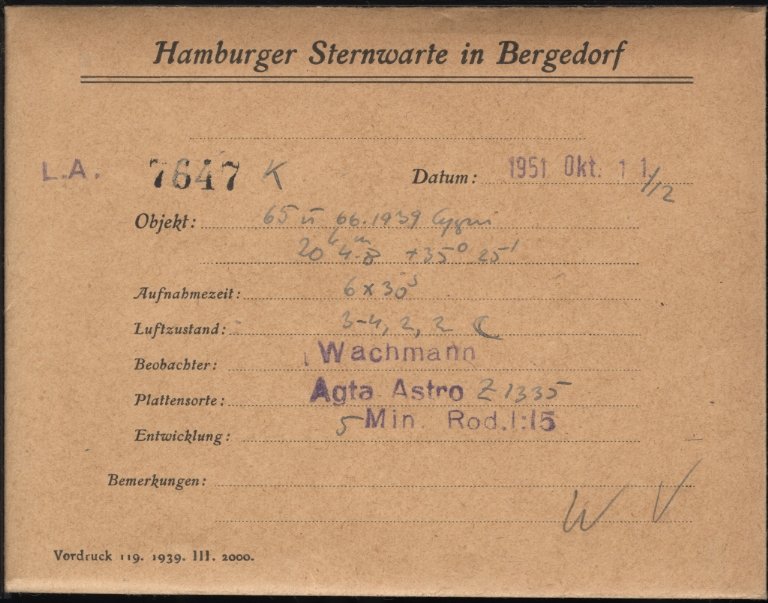 Hamburger Sternwarte in Bergedorf
L.A. 7647 K Datum: 1951 Okt. 11/12
Objekt: 65 u 66.1939 Cygni
20h 4.m8 +35° 25'
Aufnahmezeit: 6x30s
Luftzustand: 3-4, 2, 2 ☾
Beobachter: Wachmann
Plattensorte: Agfa Astro Z 1335
Entwicklung: 5 Min. Rod. 1:15
Bemerkungen:
W V
Vordruck 119. 1939. III. 2000.